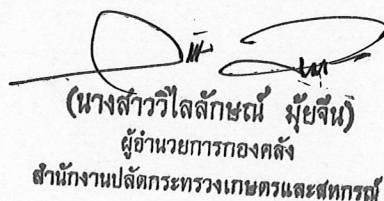 (นางสาววิไลลักษณ์ มุ้ยจีน)
ผู้อำนวยการกองคลัง
สำนักงานปลัดกระทรวงเกษตรและสหกรณ์